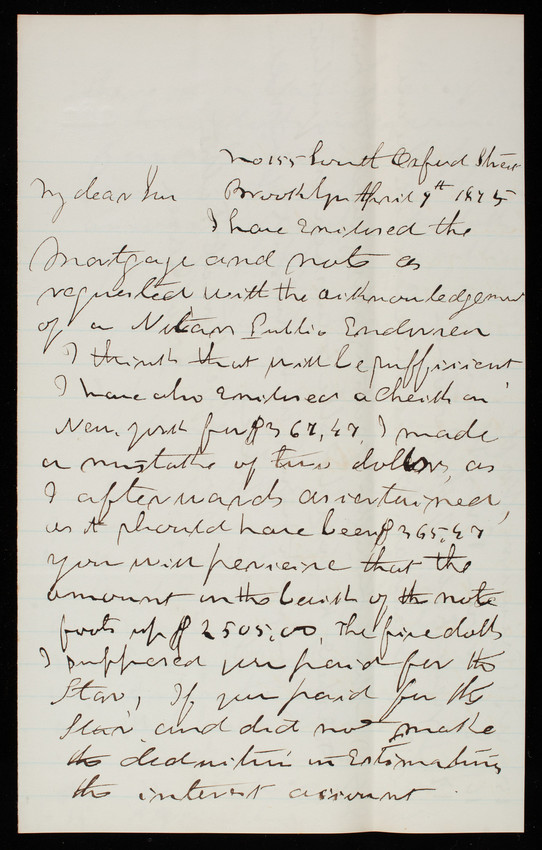 No 155 South Oxford Street
My dear Sir Brooklyn April 7th 1875
I have Enclosed the
Mortgage and note as
requested with the acknowledgement
of a Notary Public Endorsed
I think that will be sufficient
I have also Enclosed a Check on
New. York for $367,47, I made
a mistake of two dollars, as
I afterwards ascertained,
as it should have been $365,47
you will perceive that the
amount on the back of the note
foots up $2505,00, The five dolls
I supposed you paid for the
Star, If you paid for the
Star and did not make
the deduction in Estimating
the interest account